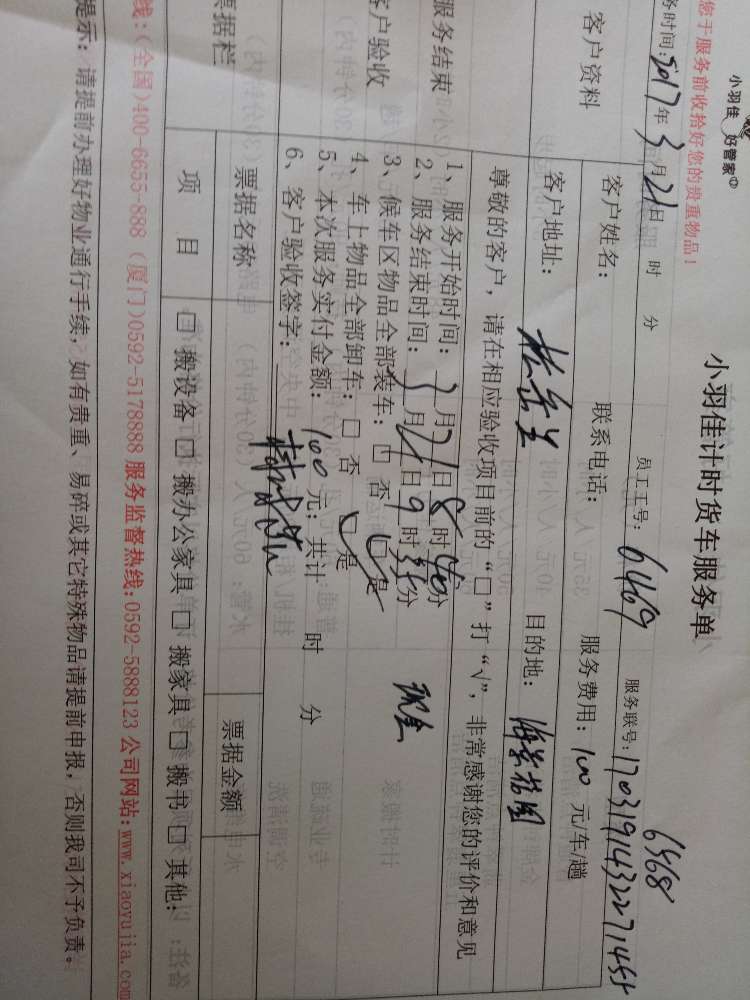 小羽佳 好管家
小羽佳计时货车服务单
您于服务前收拾好您的贵重物品！
务时间：2017年3月21日 时 分 员工工号：6469 服务联号：
6468
客户资料
客户姓名： 联系电话： 服务费用：100元/车/趟
客户地址： 目的地：
尊敬的客户，请在相应验收项目前的“□”打“√”，非常感谢您的评价和意见
服务结束
客户验收
1、服务开始时间：3月21日8时40分
2、服务结束时间：3月21日9时35分
3、候车区物品全部装车：□ 否 □ 是 现金
4、车上物品全部卸车：□ 否 □ 是
5、本次服务实付金额：100元；共计 时 分
6、客户验收签字：
票据栏
票据名称 票据金额
项 目 □ 搬设备 □ 搬办公家具 □ 搬家具 □ 搬书 □ 其他：
线：(全国)400-6655-888 (厦门)0592-5178888 服务监督热线：0592-5888123 公司网站：www.xiaoyujia.com
提示：请提前办理好物业通行手续，如有贵重、易碎或其它特殊物品请提前申报，否则我司不予负责。